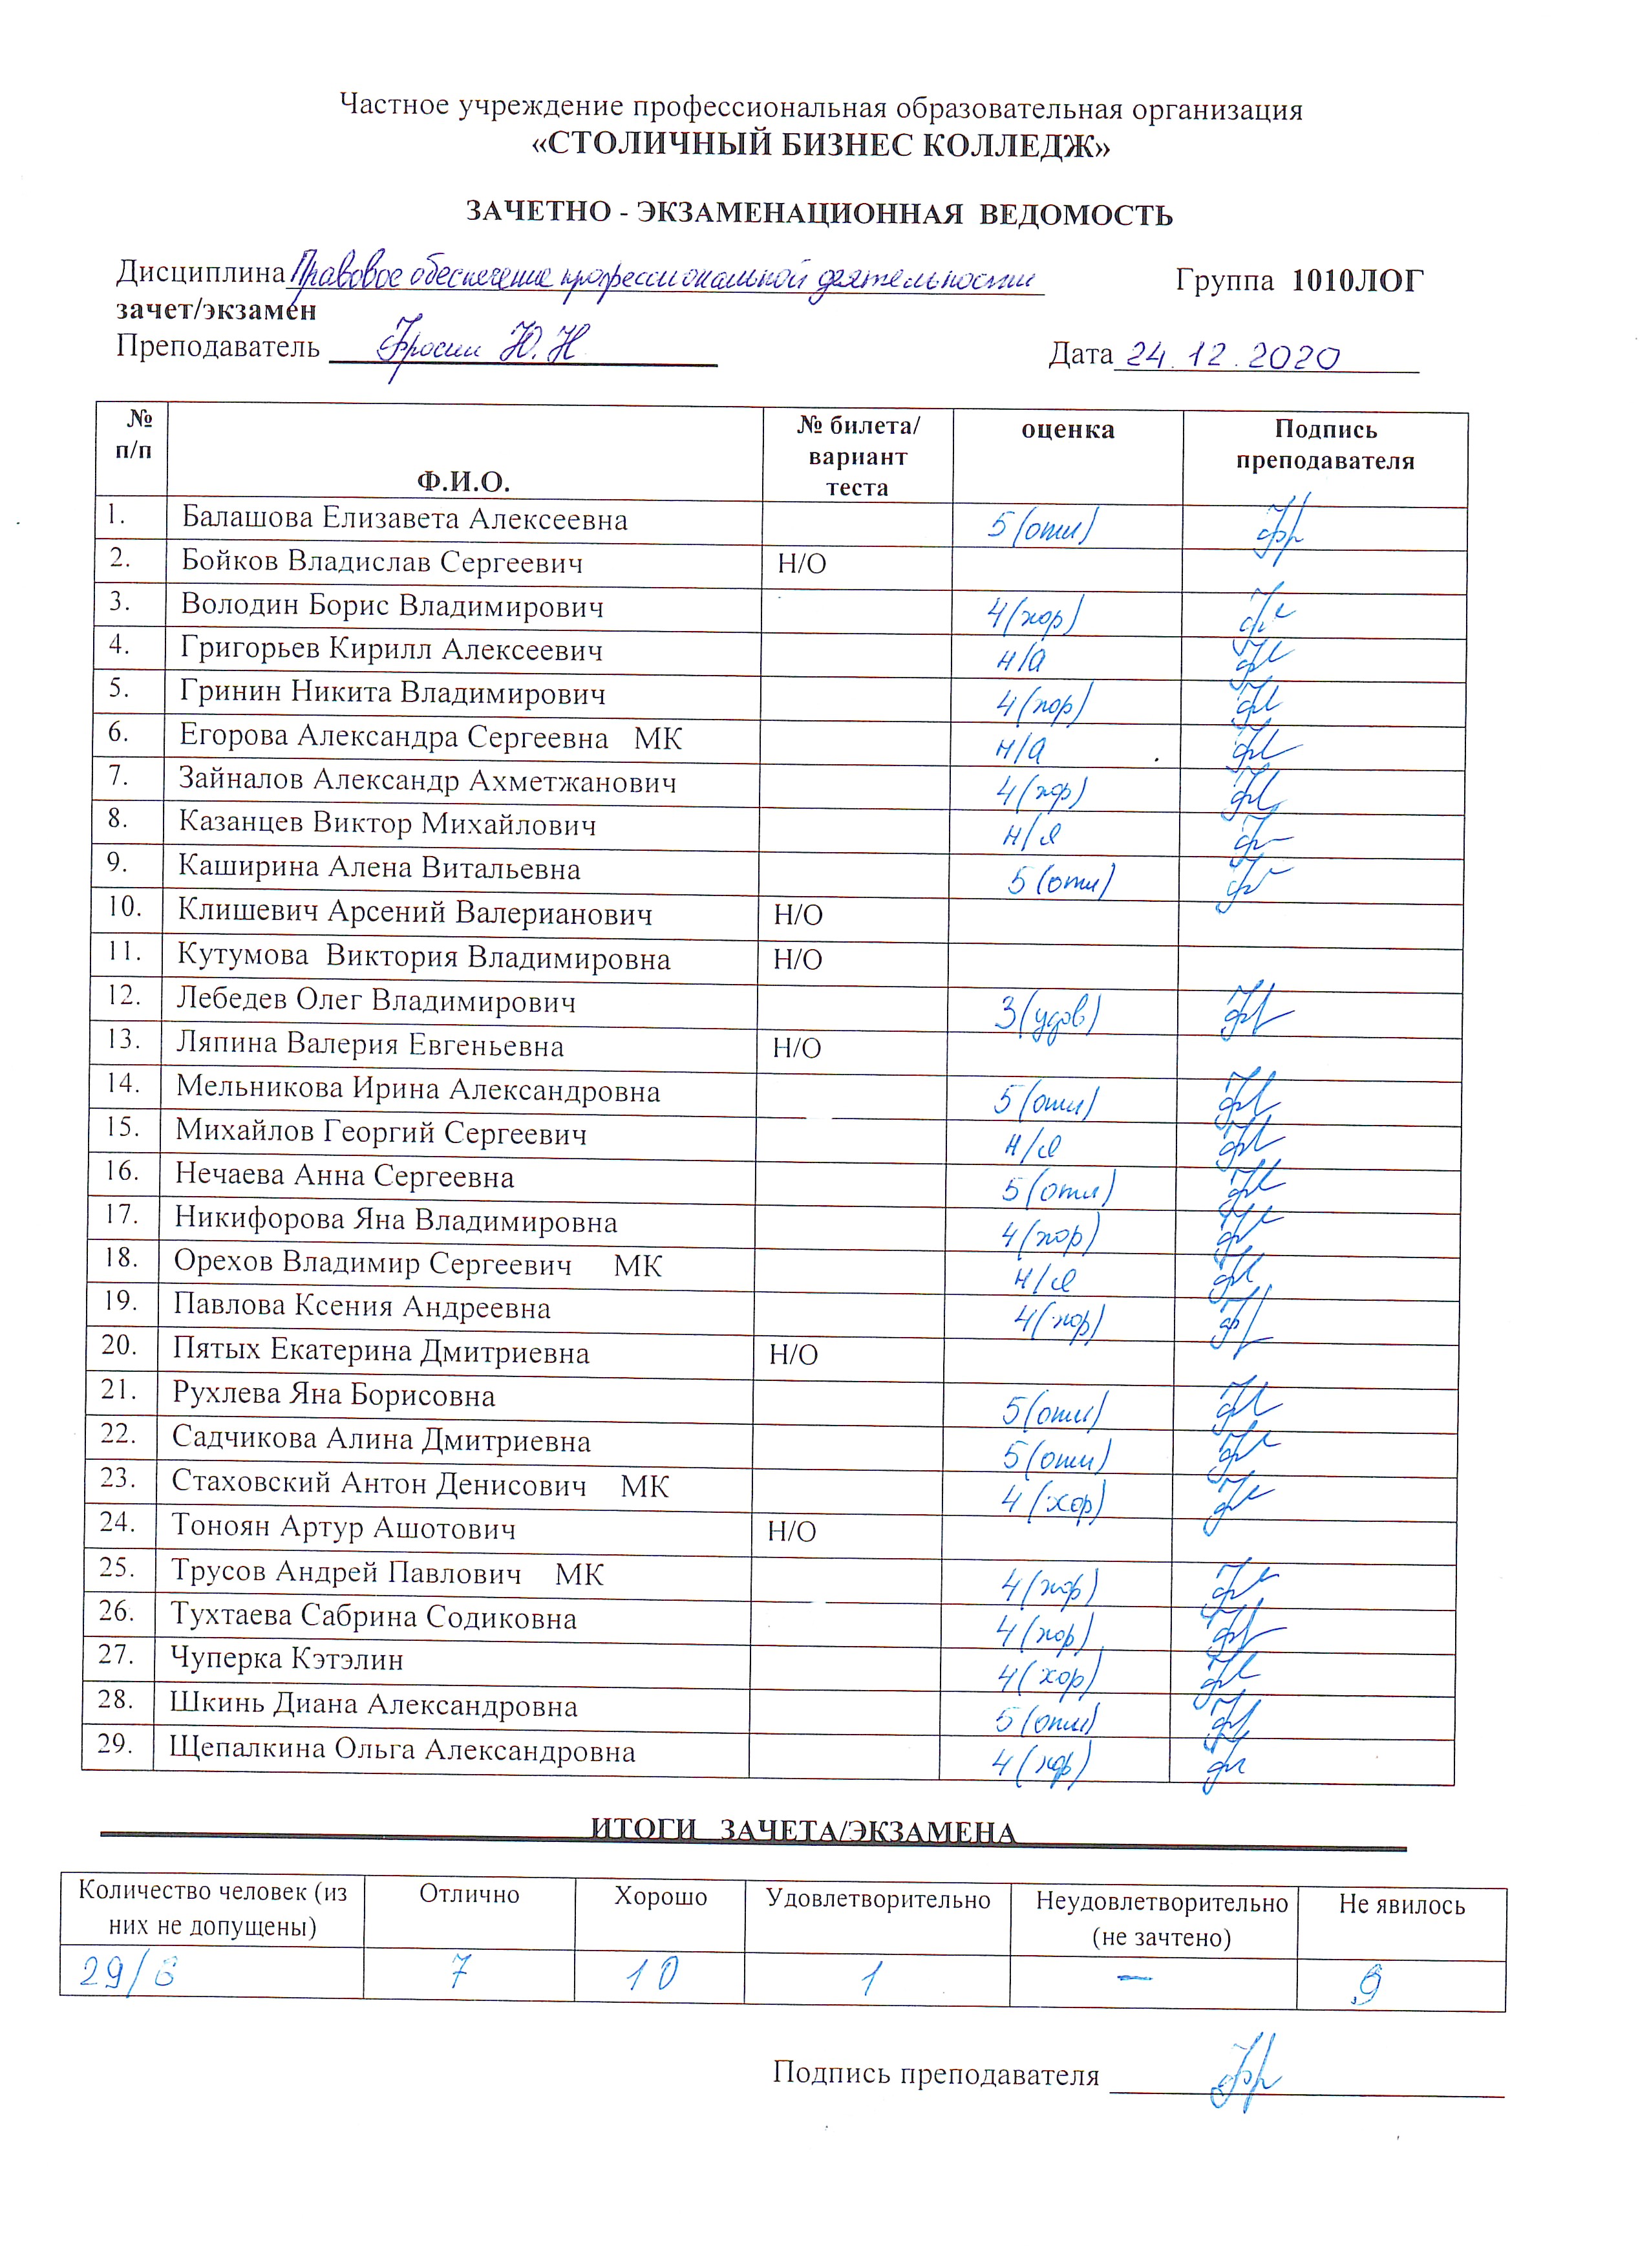 Частное учреждение профессиональная образовательная организация
«СТОЛИЧНЫЙ БИЗНЕС КОЛЛЕДЖ»
ЗАЧЕТНО - ЭКЗАМЕНАЦИОННАЯ ВЕДОМОСТЬ
Дисциплина Правовое обеспечение профессиональной деятельности Группа 1010ЛОГ
зачет/экзамен
Преподаватель Фросин Ю.Н Дата 24.12.2020
№ п/п Ф.И.О. № билета/ вариант теста оценка Подпись преподавателя
1. Балашова Елизавета Алексеевна 5 (отл)
2. Бойков Владислав Сергеевич Н/О
3. Володин Борис Владимирович 4 (хор)
4. Григорьев Кирилл Алексеевич н/а
5. Гринин Никита Владимирович 4 (хор)
6. Егорова Александра Сергеевна МК н/а
7. Зайналов Александр Ахметжанович 4 (хор)
8. Казанцев Виктор Михайлович н/я
9. Каширина Алена Витальевна 5 (отл)
10. Клишевич Арсений Валерианович Н/О
11. Кутумова Виктория Владимировна Н/О
12. Лебедев Олег Владимирович 3 (удов)
13. Ляпина Валерия Евгеньевна Н/О
14. Мельникова Ирина Александровна 5 (отл)
15. Михайлов Георгий Сергеевич н/я
16. Нечаева Анна Сергеевна 5 (отл)
17. Никифорова Яна Владимировна 4 (хор)
18. Орехов Владимир Сергеевич МК н/я
19. Павлова Ксения Андреевна 4 (хор)
20. Пятых Екатерина Дмитриевна Н/О
21. Рухлева Яна Борисовна 5 (отл)
22. Садчикова Алина Дмитриевна 5 (отл)
23. Стаховский Антон Денисович МК 4 (хор)
24. Тоноян Артур Ашотович Н/О
25. Трусов Андрей Павлович МК 4 (хор)
26. Тухтаева Сабрина Содиковна 4 (хор)
27. Чуперка Кэтэлин 4 (хор)
28. Шкинь Диана Александровна 5 (отл)
29. Щепалкина Ольга Александровна 4 (хор)
ИТОГИ ЗАЧЕТА/ЭКЗАМЕНА
Количество человек (из них не допущены) Отлично Хорошо Удовлетворительно Неудовлетворительно (не зачтено) Не явилось
29/6 7 10 1 — 9
Подпись преподавателя